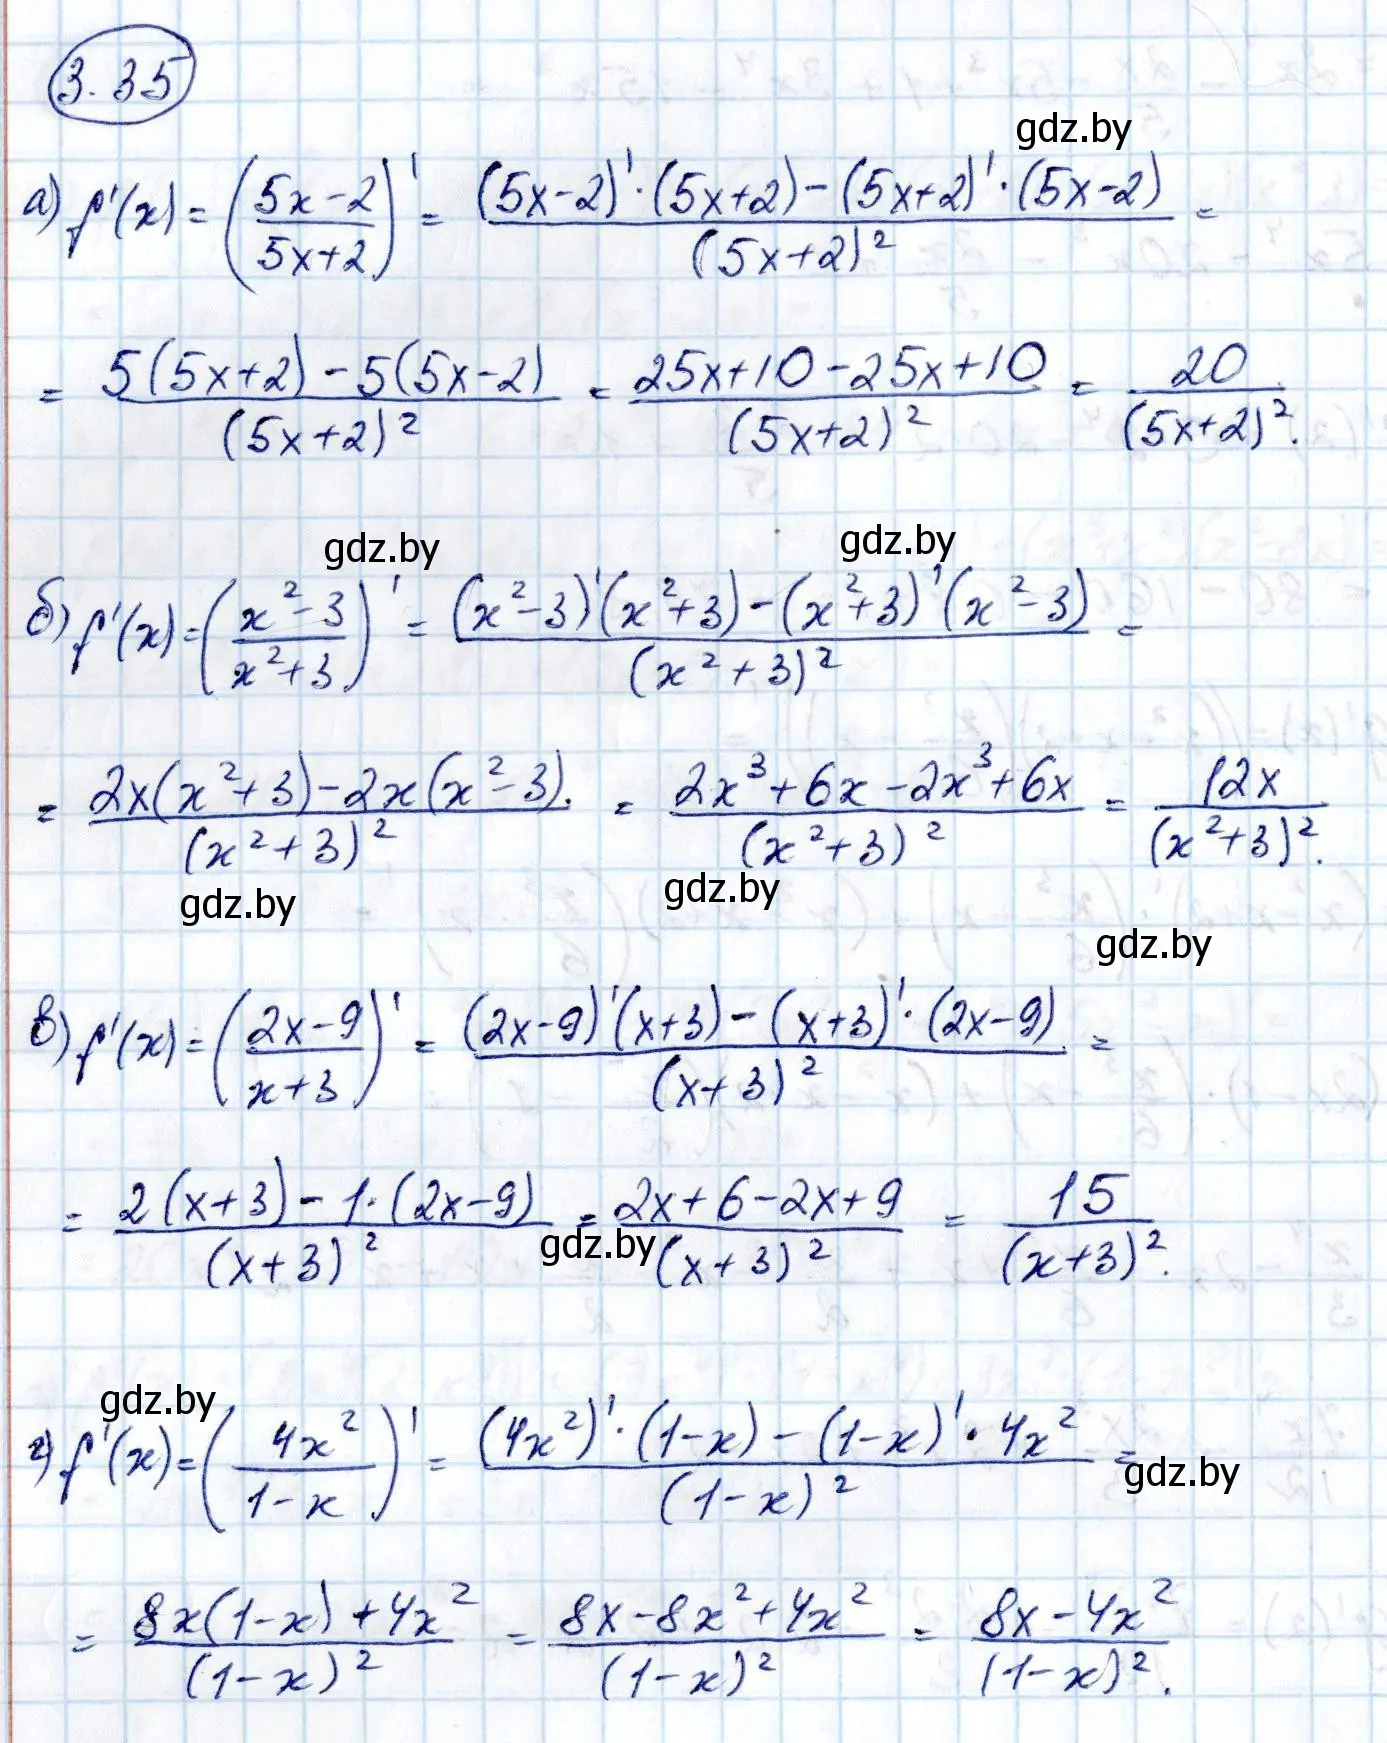 3.35
gdz.by
а) f'(x) = ((5x-2)/(5x+2))' = ((5x-2)'·(5x+2)-(5x+2)'·(5x-2))/(5x+2)² =
= (5(5x+2)-5(5x-2))/(5x+2)² = (25x+10-25x+10)/(5x+2)² = 20/(5x+2)².
gdz.by gdz.by
б) f'(x) = ((x²-3)/(x²+3))' = ((x²-3)'(x²+3)-(x²+3)'(x²-3))/(x²+3)² =
= (2x(x²+3)-2x(x²-3).)/(x²+3)² = (2x³+6x-2x³+6x)/(x²+3)² = 12x/(x²+3)².
gdz.by gdz.by
gdz.by
в) f'(x) = ((2x-9)/(x+3))' = ((2x-9)'(x+3)-(x+3)'·(2x-9))/(x+3)² =
= (2(x+3)-1·(2x-9))/(x+3)² = (2x+6-2x+9)/(x+3)² = 15/(x+3)².
gdz.by
gdz.by
г) f'(x) = (4x²/(1-x))' = ((4x²)'·(1-x)-(1-x)'·4x²)/(1-x)² =
gdz.by
= (8x(1-x)+4x²)/(1-x)² = (8x-8x²+4x²)/(1-x)² = (8x-4x²)/(1-x)².